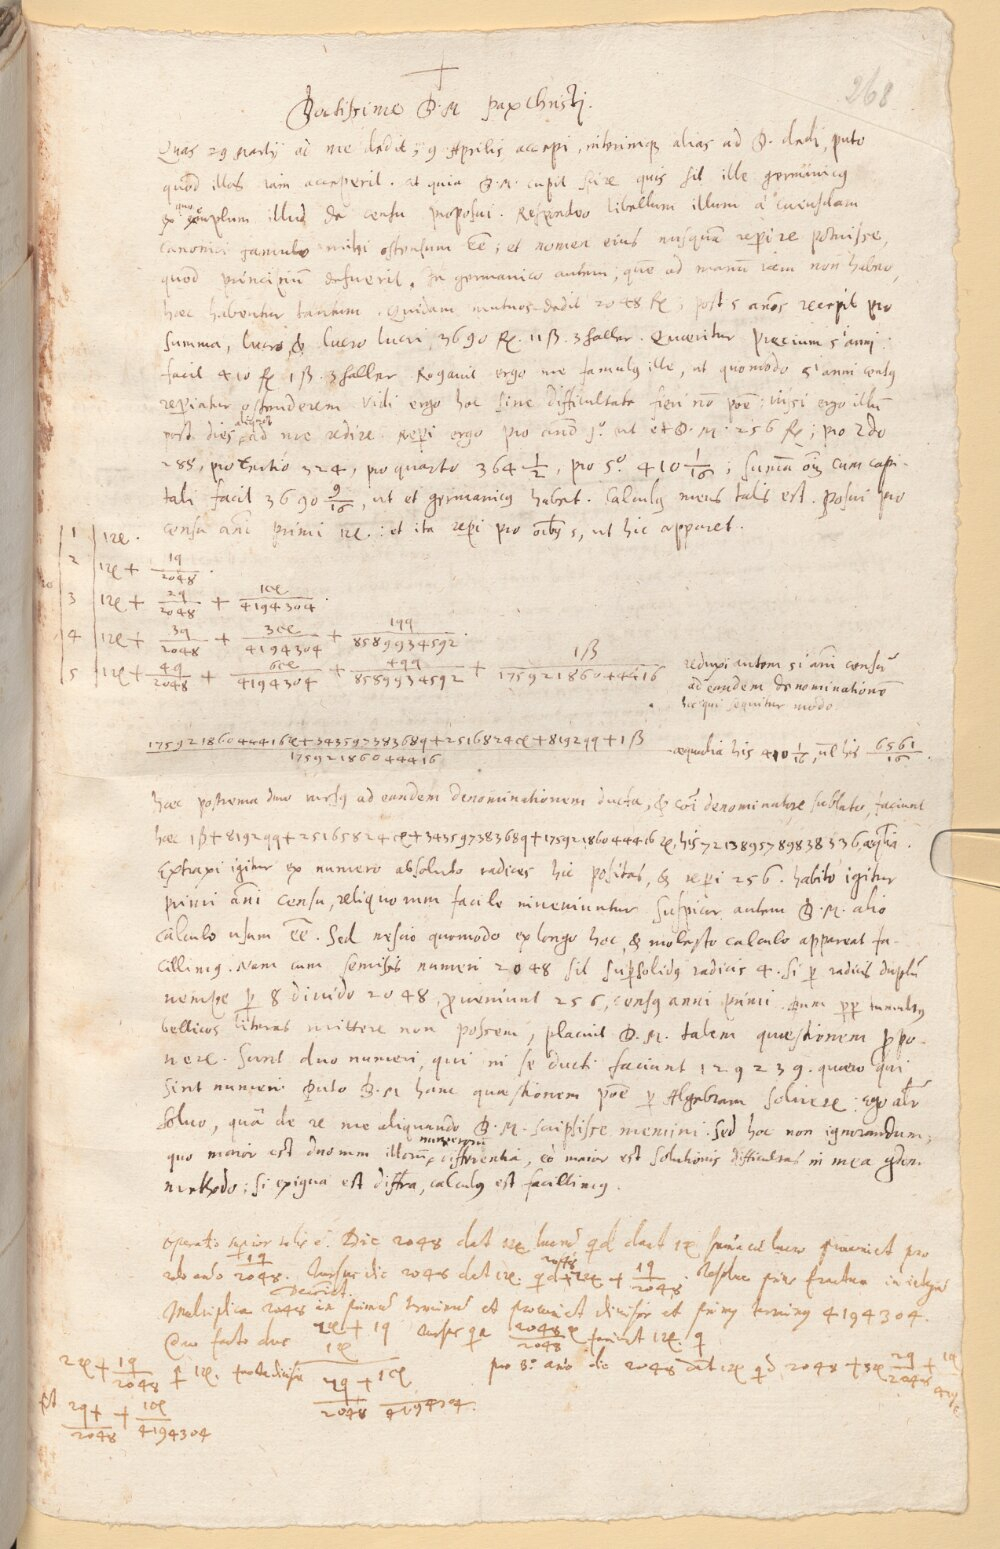 268
Doctissime D. M. pax Christi.
Quas 29 Martij ad me dedit, 9 Aprilis accepi, interimque alias ad D. dedi, puto
quod illas iam acceperit. Et quia D. M. cupit scire quis sit ille germanicus
ex quo exemplum illud de censu proposui. Respondeo libellum illum a cuiusdam
canonici famulo mihi ostensum ee; et nomen eius nusquã reperire potuisse,
quod principiũ defuerit. In germanico autem, quẽ ad manũ iam non habeo,
haec habentur tantum. Quidam mutuos dedit 2048 fl; post 5 anos recepit pro
summa, lucro, & lucro lucri, 3690 fl. 11 β. 3 haller. Quaeritur precium 5ⁱ anni
facit 410 fl 1 β. 3 haller Rogavit ergo me famulus ille, ut quomodo 5ⁱ anni census
reperiatur ostenderem. Vidi ergo hoc sine difficultate fieri nõ poẽ; iussi ergo illũ
post dies aliquot ad me redire. Reperi ergo pro año 1º. ut et D. M. 256 fl; pro 2do
288, pro tertio 324, pro quarto 364 1/2, pro 5º. 410 1/16; suma oĩm cum capi-
tali facit 3690 9/16, ut et germanicus habet. Calculus meus talis est. Posui pro
censu anĩ primi 1 ɀe: et ita reperi pro oĩbus 5, ut hic apparet.
1 | 1 ɀe.
2 | 1 ɀe + 1q/2048.
3 | 1 ɀe + 2q/2048 + 1ce/4194304.
4 | 1 ɀe + 3q/2048 + 3ce/4194304 + 1qq/8589934592.
5 | 1 ɀe + 4q/2048 + 6ce/4194304 + 4qq/8589934592 + 1β/17592186044416
reduxi autem 5ⁱ anĩ censũ
ad eandem denominationẽ
hic qui sequitur modo
17592186044416 ɀe + 34359738368q + 2516824ce + 8192qq + 1β/17592186044416 aequalia his 410 1/16, ul his 6561/16.
haec postrema duo rursus ad eandem denominationem ducta, & coĩ denominatore sublato, faciunt
haec 1β + 8192qq + 25165824ce + 34359738368q + 17592186044416 ɀe, his 7213895789838336 aeqlia.
Extraxi igitur ex numero absoluto radices hic positas, & reperi 256. habito igitur
primi anĩ censu, reliquorum facile inveniuntur. Suspicor autem D. M. alio
calculo usum ee. Sed nescio quomodo ex longo hoc, & molesto calculo appareat fa-
cillimus. Nam cum semissis numeri 2048 sit supersolidus radicis 4. Si per radicis duplũ
nempe per 8 divido 2048, proveniunt 256, census anni primi. Dum propter tumultus
bellicos literas mittere non possem, placuit D. M. talem quaestionem propo-
nere. Sunt duo numeri, qui in se ducti faciunt 129239. quaero qui
sint numeri. Puto D. M. hanc quaestionem poẽ per Algebram solvere: Ego alr
solvo, quã de re me aliquando D. M. scripsisse memini. Sed hoc non ignorandum,
quo maior est duorum illorũ numerorum differentia, eo maior est solutionis difficultas in mea quidem
methodo; si exigua est diffra, calculus est facillimus.
Operatio superior talis ẽ. Dic 2048 dat 1 ɀe lucrũ qd dabit 1 ɀe
1q/2048. Rursus dic 2048 dat 1 ɀe.
Multiplica 2048 in primũ terminũ et provenict divisor et primus terminus 4194304.
Quo facto duc
pro 3º. año dic 2048 dat 1 ɀe
2q/2048 + 1ce/4194304